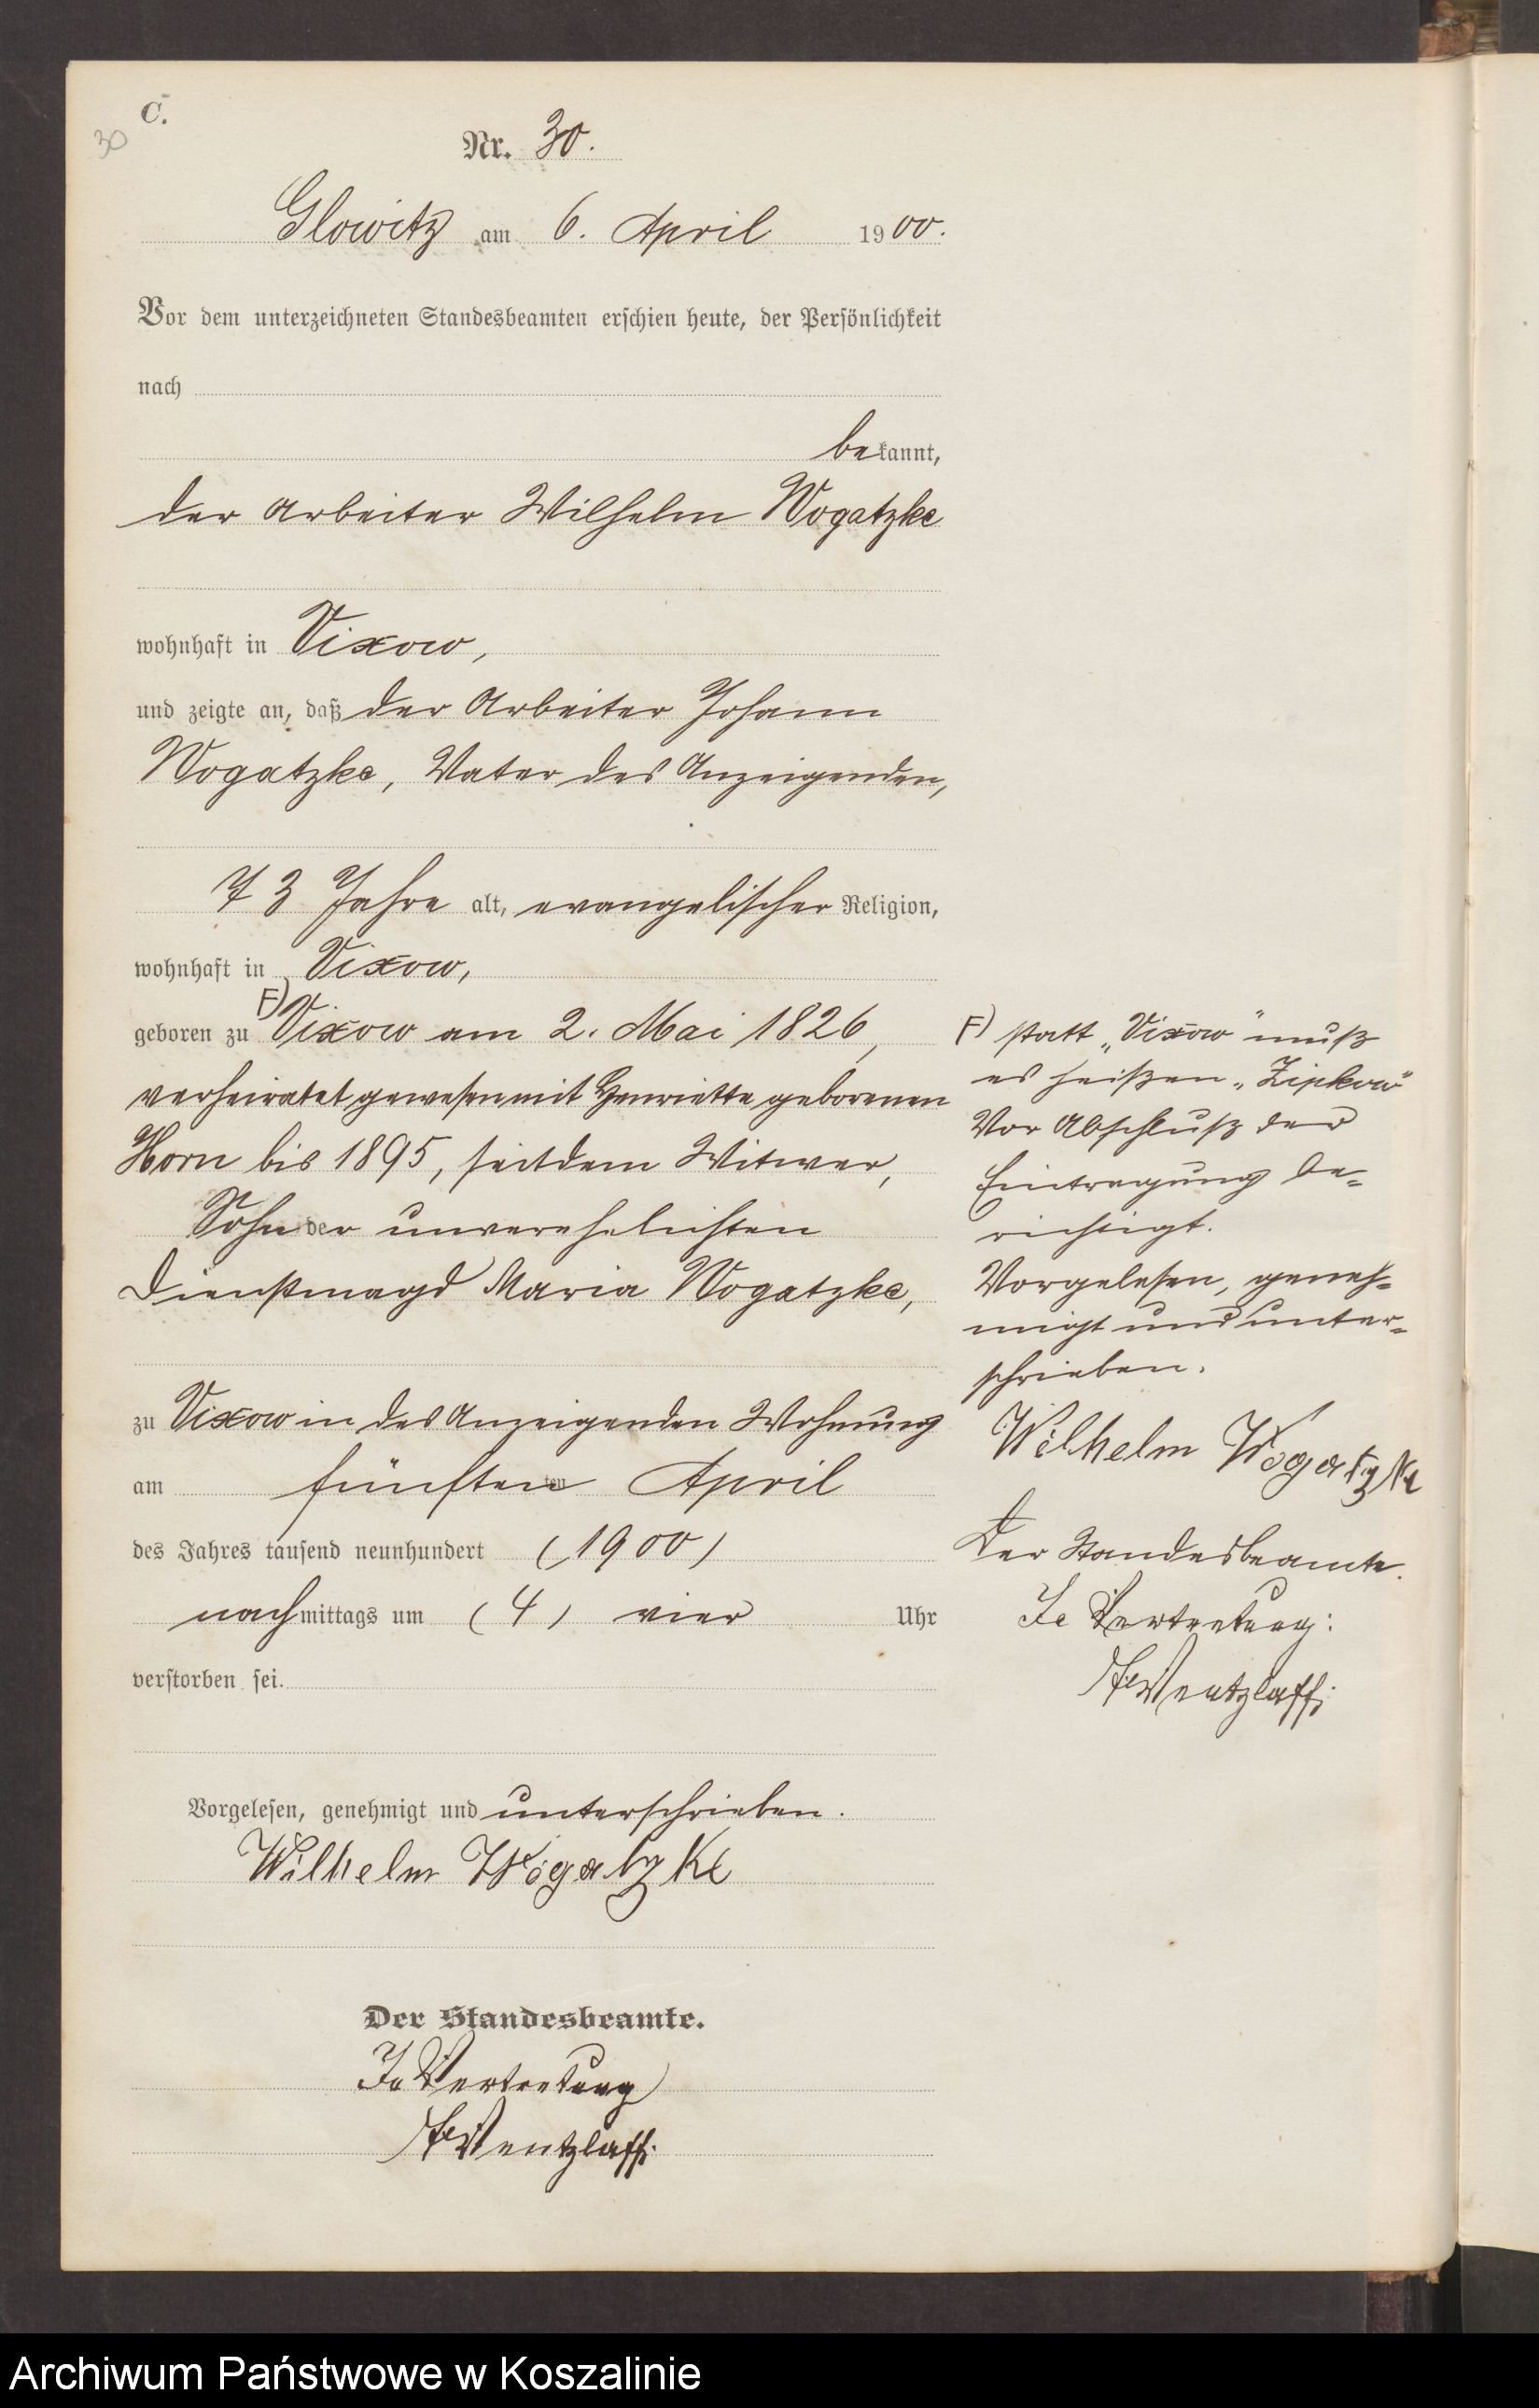 C.
30
Nr. 30.
Glowitz am 6. April 1900.
Vor dem unterzeichneten Standesbeamten erschien heute, der Persönlichkeit
nach
bekannt,
der Arbeiter Wilhelm Wogatzke
wohnhaft in Vixow,
und zeigte an, daß der Arbeiter Johann
Wogatzke, Vater des Anzeigenden,
73 Jahre alt, evangelischer Religion,
wohnhaft in Vixow,
geboren zu F) Vixow am 2. Mai 1826,
verheiratet gewesen mit Henriette geborenen
Horn bis 1895, seitdem Witwer,
Sohn der unverehelichten
Dienstmagd Maria Wogatzke,
zu Vixow in des Anzeigenden Wohnung
am fünften ten April
des Jahres tausend neunhundert (1900)
nachmittags um (4) vier Uhr
verstorben sei.
Vorgelesen, genehmigt und unterschrieben.
Wilhelm Wogatzke
Der Standesbeamte.
In Vertretung
Wentzlaff.
F) statt „Vixow" muß
es heißen „Zipkow"
Vor Abschluß der
Eintragung be=
richtigt.
Vorgelesen, geneh=
migt und unter=
schrieben.
Wilhelm Wogatzke
Der Standesbeamte.
In Vertretung:
Wentzlaff.
Archiwum Państwowe w Koszalinie